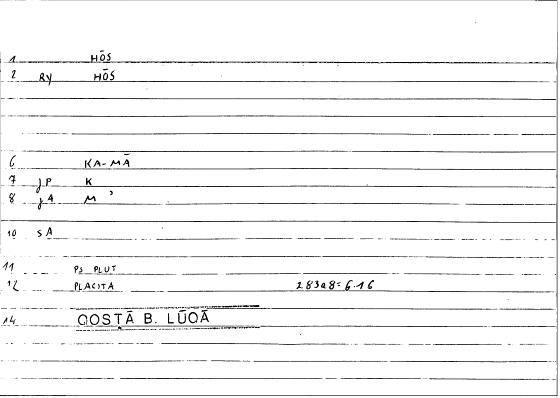 1 HŌS
2 RY HŌS
6 KA-MĀ
7 jP K
8 jA M ʾ
10 SA
11 PS PLUT
12 PLACITA 283a8=6.16
14 QOSṬĀ B. LŪQĀ